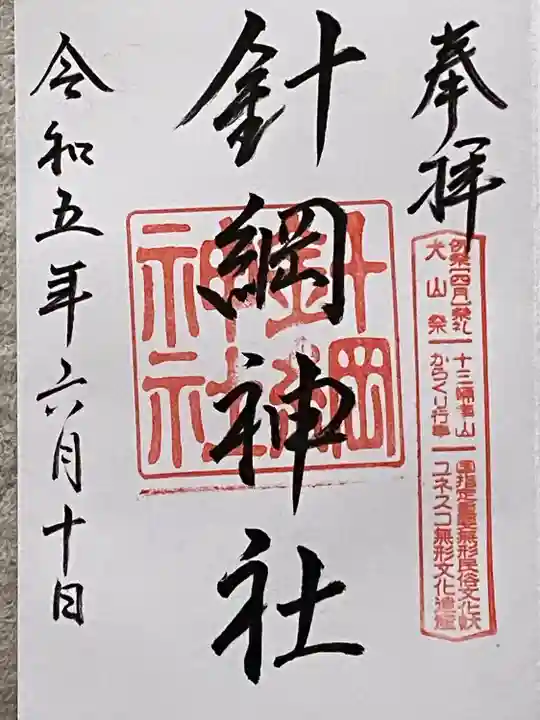 奉拝
例祭(四月)祭礼 十三輛車山 国指定重要無形民俗文化財
犬山祭 からくり行事 ユネスコ無形文化遺産
針綱神社
針綱
神社
令和五年六月十日